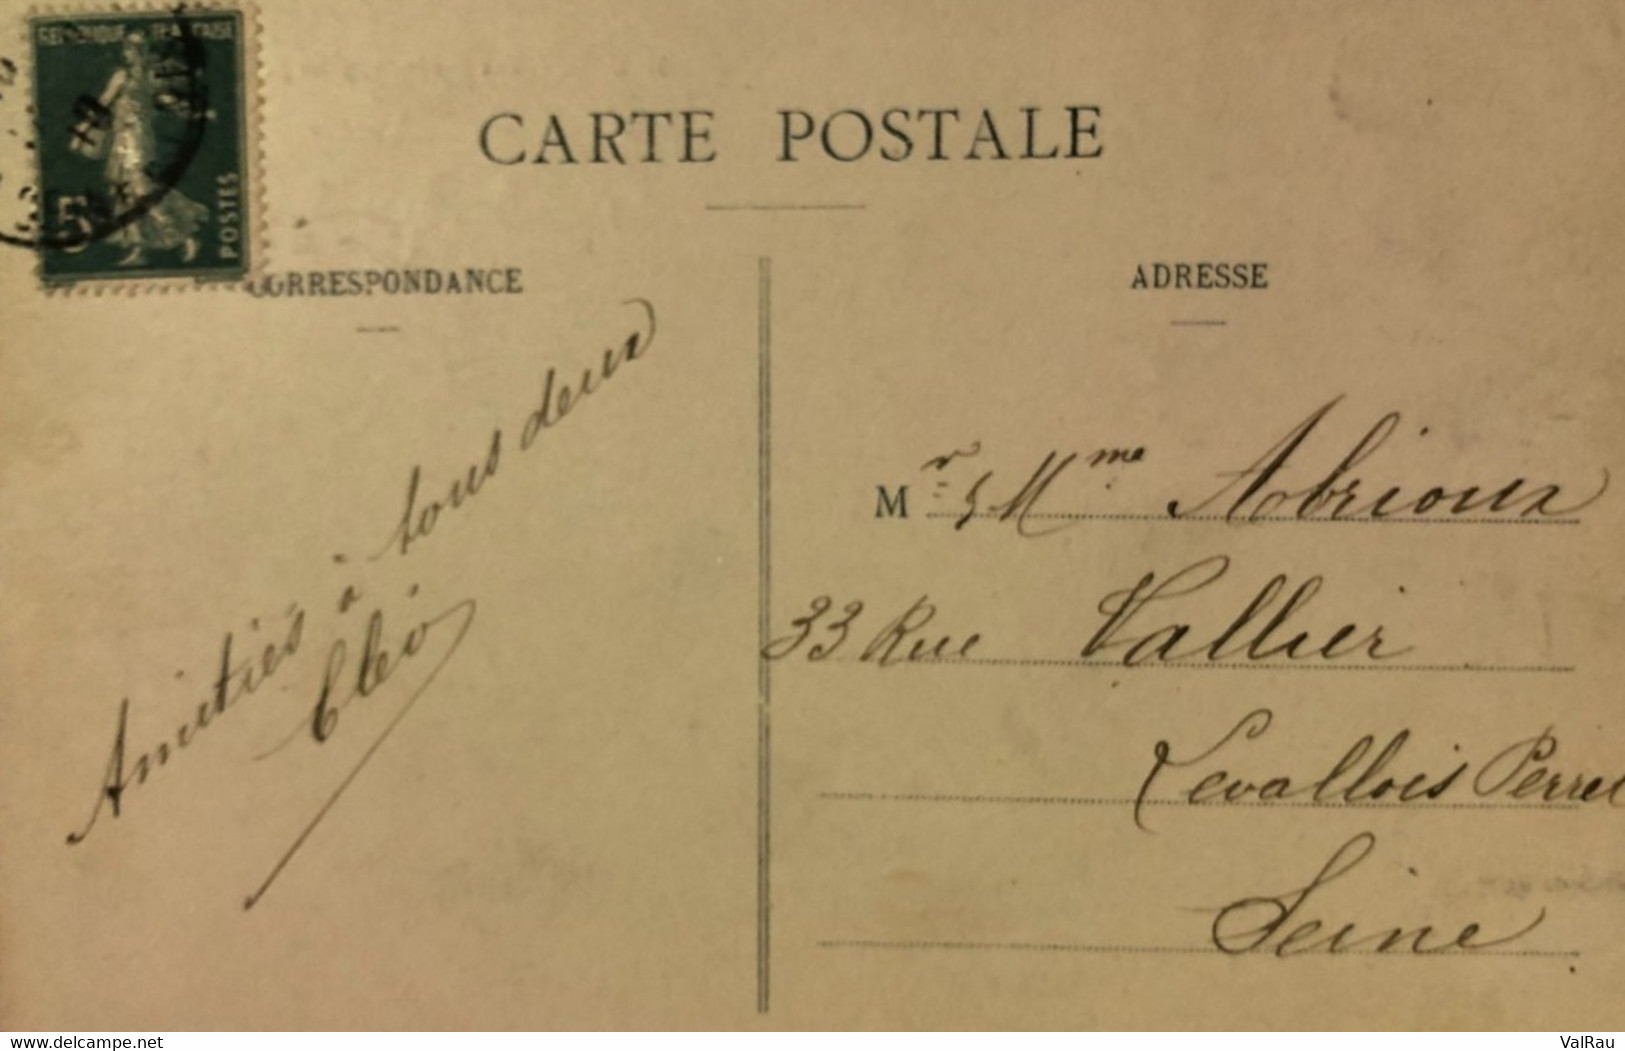 REPUBLIQUE FRANÇAISE
5
POSTES
CARTE POSTALE
CORRESPONDANCE
Amitiés à tous deux
Cléo
ADRESSE
Mr & Mme Abrioux
33 Rue Vallier
Levallois Perret
Seine
delcampe.net
ValRau